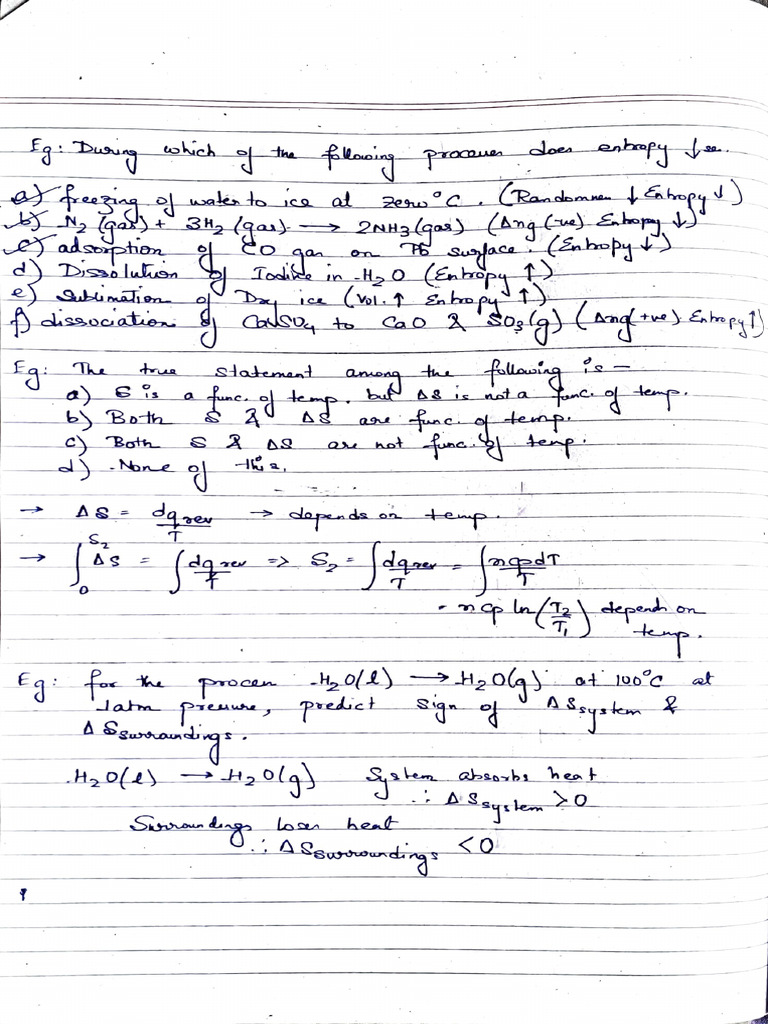 Eg: During which of the following processes does entropy ↓se.
a) freezing of water to ice at zero°C. (Randomness ↓ Entropy ↓)
b) N2 (gas) + 3H2 (gas) → 2NH3 (gas) (Δng (-ve) Entropy ↓)
c) adsorption of CO gas on Pb surface. (Entropy ↓)
d) Dissolution of Iodine in H2O (Entropy ↑)
e) Sublimation of Dry ice (Vol. ↑ Entropy ↑)
f) dissociation of CaSO4 to CaO & SO3(g) (Δng(+ve) Entropy↑)
Eg: The true statement among the following is –
a) S is a func. of temp. but ΔS is not a func. of temp.
b) Both S & ΔS are func. of temp.
c) Both S & ΔS are not func. of temp.
d) None of this.
→ ΔS = dqrev/T → depends on temp.
→ ∫₀^S2 ΔS = ∫ dqrev/T => S2 = ∫ dqrev/T = ∫ ncpdT/T
= ncp ln(T2/T1) depends on
temp.
Eg: for the process H2O(l) → H2O(g) at 100°C at
1atm pressure, predict sign of ΔSsystem &
ΔSsurroundings.
H2O(l) → H2O(g) System absorbs heat
∴ ΔSsystem > 0
Surroundings loses heat
∴ ΔSsurroundings < 0